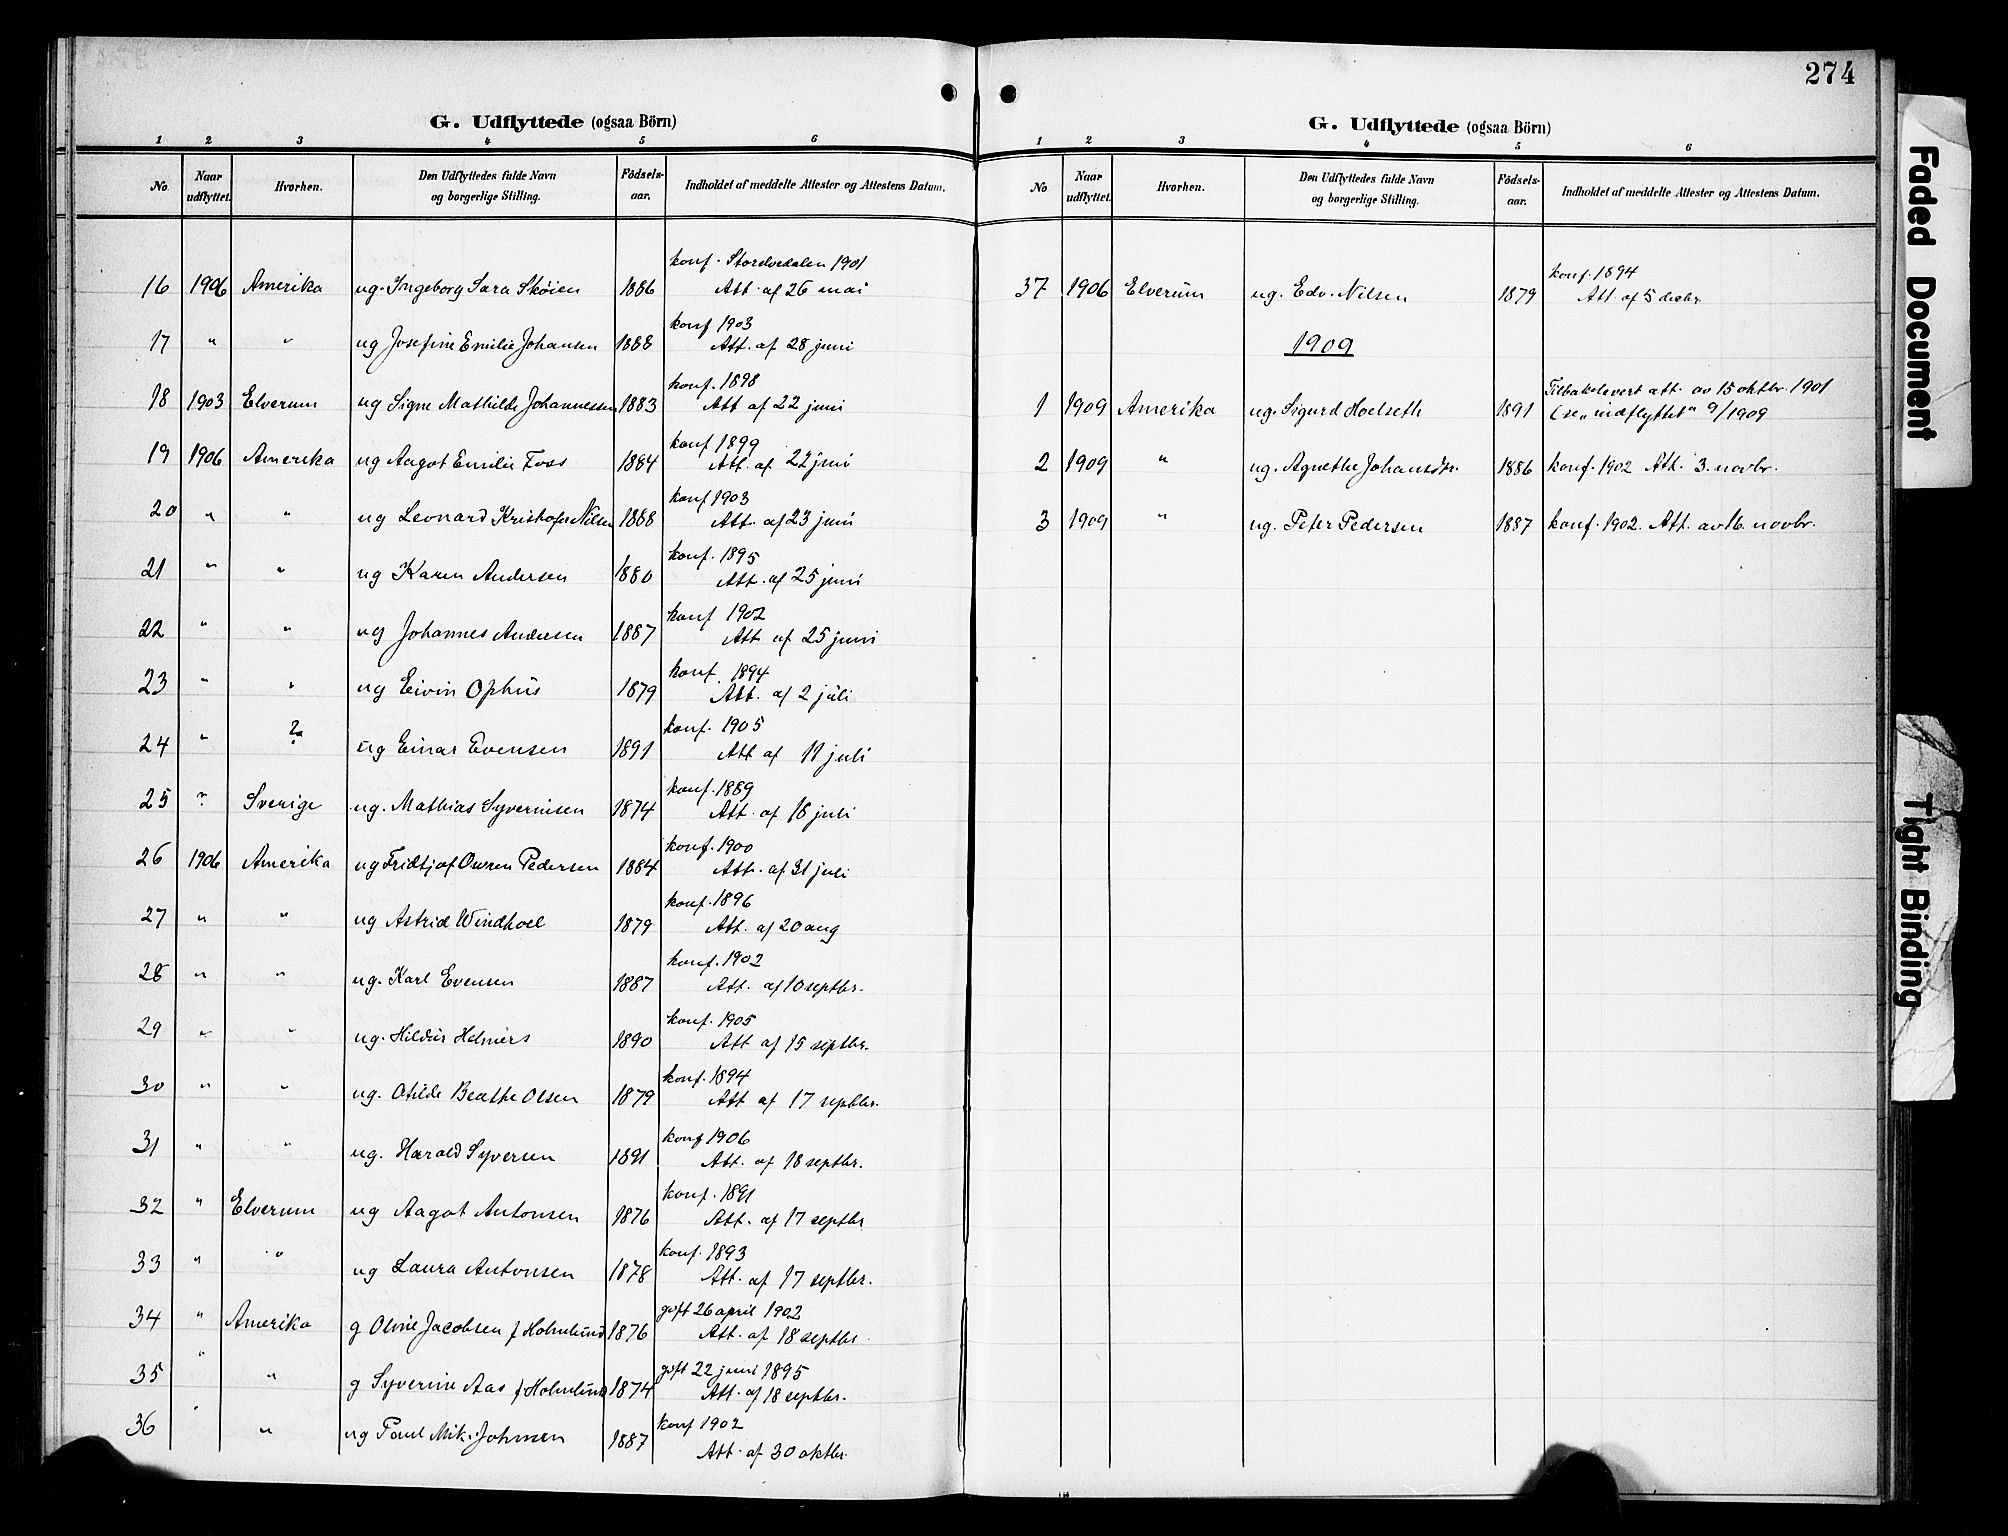 274
G. Udflyttede (ogsaa Börn)
1 2 3 4 5 6
No. Naar udflyttet. Hvorhen. Den Udflyttedes fulde Navn og borgerlige Stilling. Födsels-aar. Indholdet af meddelte Attester og Attestens Datum.
konf. Storelvedalen 1901
16 1906 Amerika ug. Ingeborg Sara Skóien 1886 Att. af 26 mai
konf 1903
17 " " ug Josefine Emilie Johansen 1888 Att. af 28 juni
konf. 1898
18 1903 Elverum ug Signe Mathilde Johannessen 1883 Att af 22 juni
konf 1899
19 1906 Amerika ug Aagot Emilie Foss 1884 Att. af 22 juni
konf 1903
20 " " ug Leonard Kristofer Nilsen 1888 Att. af 23 juni
konf. 1895
21 " " ug Karen Andersen 1880 Att. af 25 juni
konf 1902
22 " " ug Johannes Andersen 1887 Att af 25 juni
konf. 1894
23 " " ug Eivin Ophus 1879 Att. af 2 juli
konf. 1905
24 " ? ug Einar Evensen 1891 Att af 11 juli
konf. 1889
25 ? Sverige ug. Mathias Syverinsen 1874 Att. af 16 juli
konf. 1900
26 1906 Amerika ug Fridtjof Owren Pedersen 1884 Att. af 31 juli
konf. 1896
27 " " ug Astrid Windhoel 1879 Att. af 20 aug
konf. 1902
28 " " ug. Karl Evensen 1887 Att. af 10 septbr.
konf. 1905
29 " " ug. Hildur Helmers 1890 Att af 15 septbr.
konf. 1894
30 " " ug. Otilde Beathe Olsen 1879 Att af 17 septbr.
konf 1906
31 " " ug. Harald Syversen 1891 Att. af 18 septbr.
konf. 1891
32 " Elverum ug Aagot Antonsen 1876 Att. af 17 septbr
konf. 1893
33 " " ug Laura Antonsen 1878 Att. af 17 septbr.
gift 26 april 1902
34 " Amerika g Oline Jacobsen f Holmlund 1876 Att. af 18 septbr
gift 22 juni 1895
35 " " g Syverine Aas f Holmlund 1874 Att. af 18 septbr.
konf 1902
36 " " ug Paul Mik. Johnsen 1887 Att. af 30 oktbr.
G. Udflyttede (ogsaa Börn)
1 2 3 4 5 6
No. Naar udflyttet. Hvorhen. Den Udflyttedes fulde Navn og borgerlige Stilling. Födsels-aar. Indholdet af meddelte Attester og Attestens Datum.
konf. 1894
37 1906 Elverum ug. Edv. Nilsen 1879 Att. af 5 decbr.
1909
Tilbakelevert att. av 15 oktbr. 1901
1 1909 Amerika ug. Sigurd Hoelseth 1891 (se „indflyttet" 9/1909
2 1909 " ug. Agnethe Johansdtr. 1886 konf. 1902 Att. 3. novbr.
3 1909 " ug. Peter Pedersen 1887 konf. 1902. Att. av 16. novbr.
Faded Document
Tight Binding